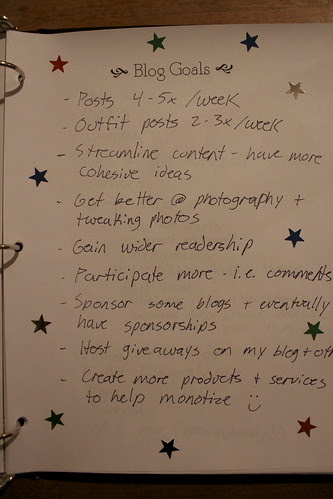 Blog Goals
- Posts 4-5x/week
- Outfit posts 2-3x/week
- Streamline content - have more
cohesive ideas
- Get better @ photography +
tweaking photos
- Gain wider readership
- Participate more - i.e. comments
- Sponsor some blogs + eventually
have sponsorships
- Host giveaways on my blog +
- Create more products + services
to help monotize :)